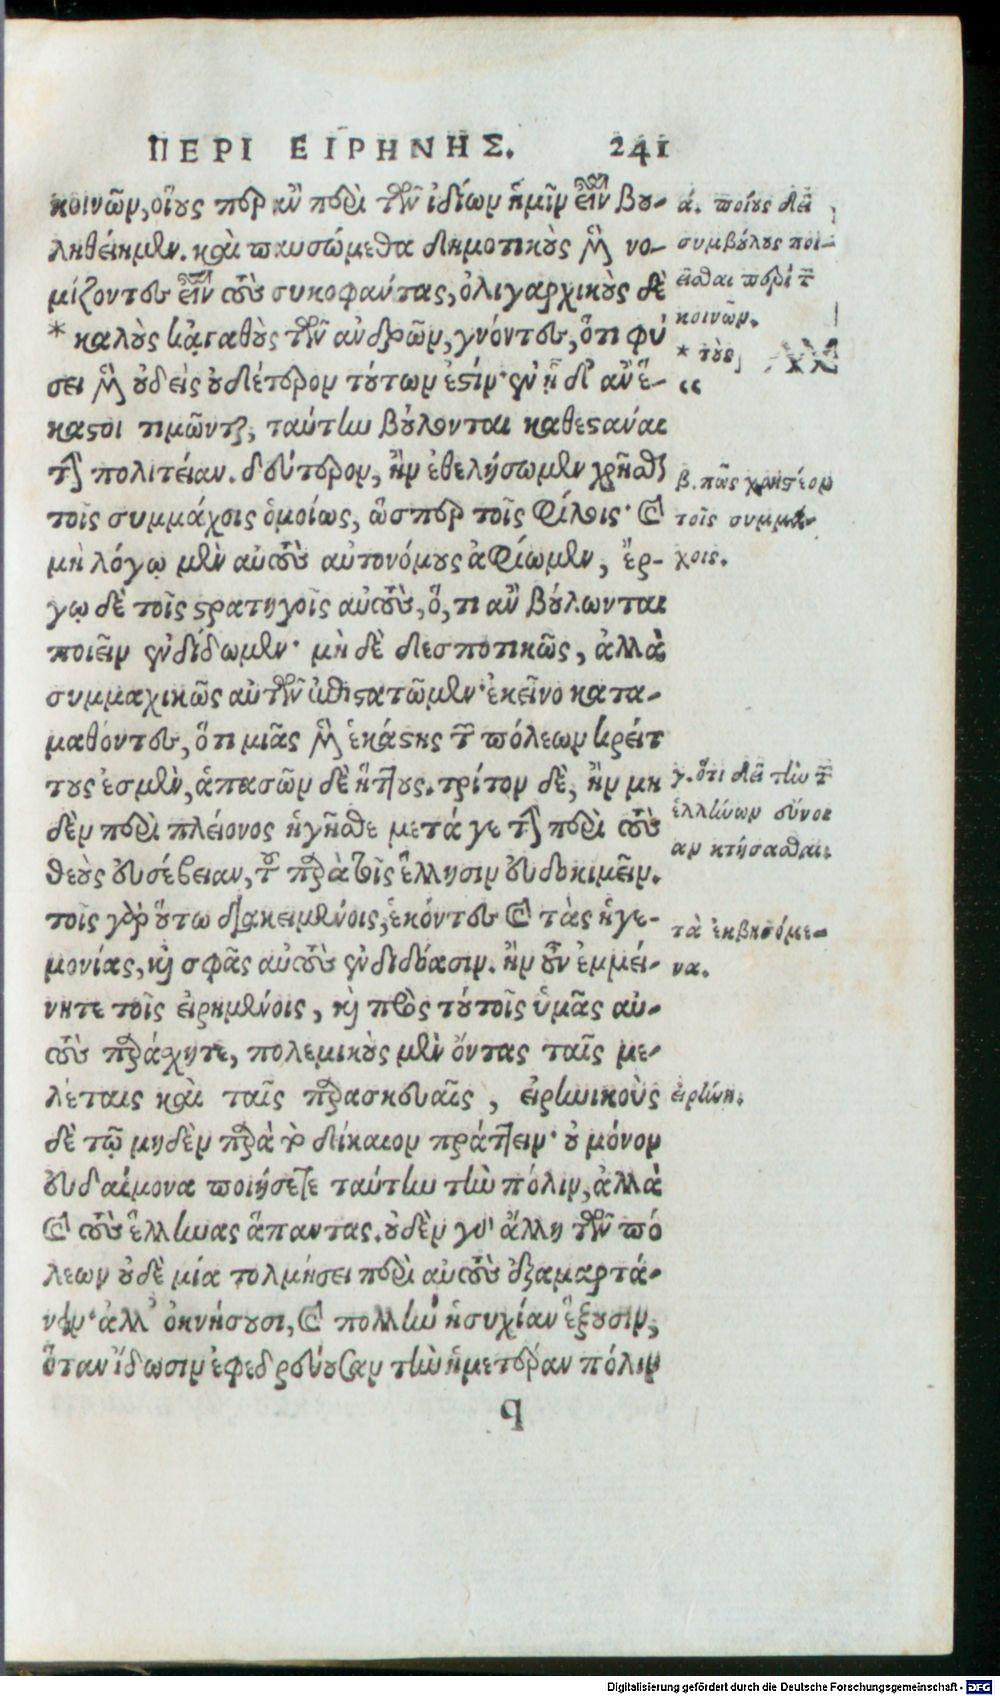 ΠΕΡΙ ΕΙΡΗΝΗΣ. 241
κοινῶν, οἵους περ ἂν περὶ τῶν ἰδίων ἡμῖν εἶναι βου-
ληθείημεν. καὶ παυσώμεθα δημοτικοὺς μὲν νο-
μίζοντες εἶναι τοὺς συκοφαντας, ὀλιγαρχικοὺς δὲ
* καλοὺς κἀγαθοὺς τῶν ἀνδρῶν, γνόντες, ὅτι φύ
σει μὲν οὐδεὶς οὐδέτερον τούτων ἐστίν· ἐν ᾗ δ' ἂν ἕ-
καστοι τιμῶνται, ταύτην βούλονται καθεστάναι
τὴν πολιτείαν. δεύτερον, ἢν ἐθελήσωμεν χρῆσθαι
τοῖς συμμάχοις ὁμοίως, ὥσπερ τοῖς φίλοις· καὶ
μὴ λόγῳ μὲν αὐτοὺς αὐτονόμους ἀφίωμεν, ἔρ-
γῳ δὲ τοῖς στρατηγοῖς αὐτοὺς, ὅ,τι ἂν βούλωνται
ποιεῖν ἐνδίδωμεν· μὴ δὲ δεσποτικῶς, ἀλλὰ
συμμαχικῶς αὐτῶν ἐπιστατῶμεν· ἐκεῖνο κατα-
μαθόντες, ὅτι μιᾶς μὲν ἑκάστης τῶν πόλεων κρείτ
τους ἐσμὲν, ἁπασῶν δὲ ἥττους. τρίτον δὲ, ἢν μη
δὲν περὶ πλείονος ἡγῆσθε μετά γε τὴν περὶ τοὺς
θεοὺς εὐσέβειαν, τοῦ παρὰ τοῖς ἕλλησιν εὐδοκιμεῖν.
τοῖς γὰρ οὕτω διακειμένοις, ἑκόντες καὶ τὰς ἡγε-
μονίας, καὶ σφᾶς αὐτοὺς ἐνδιδόασιν. ἢν οὖν ἐμμεί-
νητε τοῖς εἰρημένοις, καὶ πρὸς τούτοις ὑμᾶς αὐ-
τοὺς παράσχητε, πολεμικοὺς μὲν ὄντας ταῖς με-
λέταις καὶ ταῖς παρασκευαῖς, εἰρηνικοὺς
δὲ τῷ μηδὲν παρὰ τὸ δίκαιον πράττειν· οὐ μόνον
εὐδαίμονα ποιήσετε ταύτην τὴν πόλιν, ἀλλὰ
καὶ τοὺς ἕλληνας ἅπαντας. οὐδὲν γὰρ ἄλλη τῶν πό
λεων οὐδὲ μία τολμήσει περὶ αὐτοὺς ἐξαμαρτά-
νειν· ἀλλ' ὀκνήσουσι, καὶ πολλὴν ἡσυχίαν ἕξουσιν,
ὅταν ἴδωσιν ἐφεδρεύουσαν τὴν ἡμετέραν πόλιν
q
ά. ποίους δεῖ
συμβούλους ποι-
εῖσθαι περὶ τῶν
κοινῶν.
* τοὺς
“
β. πῶς χρηστέον
τοῖς συμμά-
χοις.
γ. ὅτι δεῖ τὴν τῶν
ἑλλήνων εὔνοι
αν κτήσασθαι.
τὰ ἐκβησόμε-
να.
εἰρήνη.
Digitalisierung gefördert durch die Deutsche Forschungsgemeinschaft - DFG